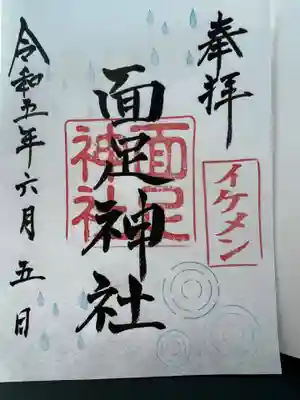 奉拝
イケメン
面足神社
面足神社
令和五年六月五日